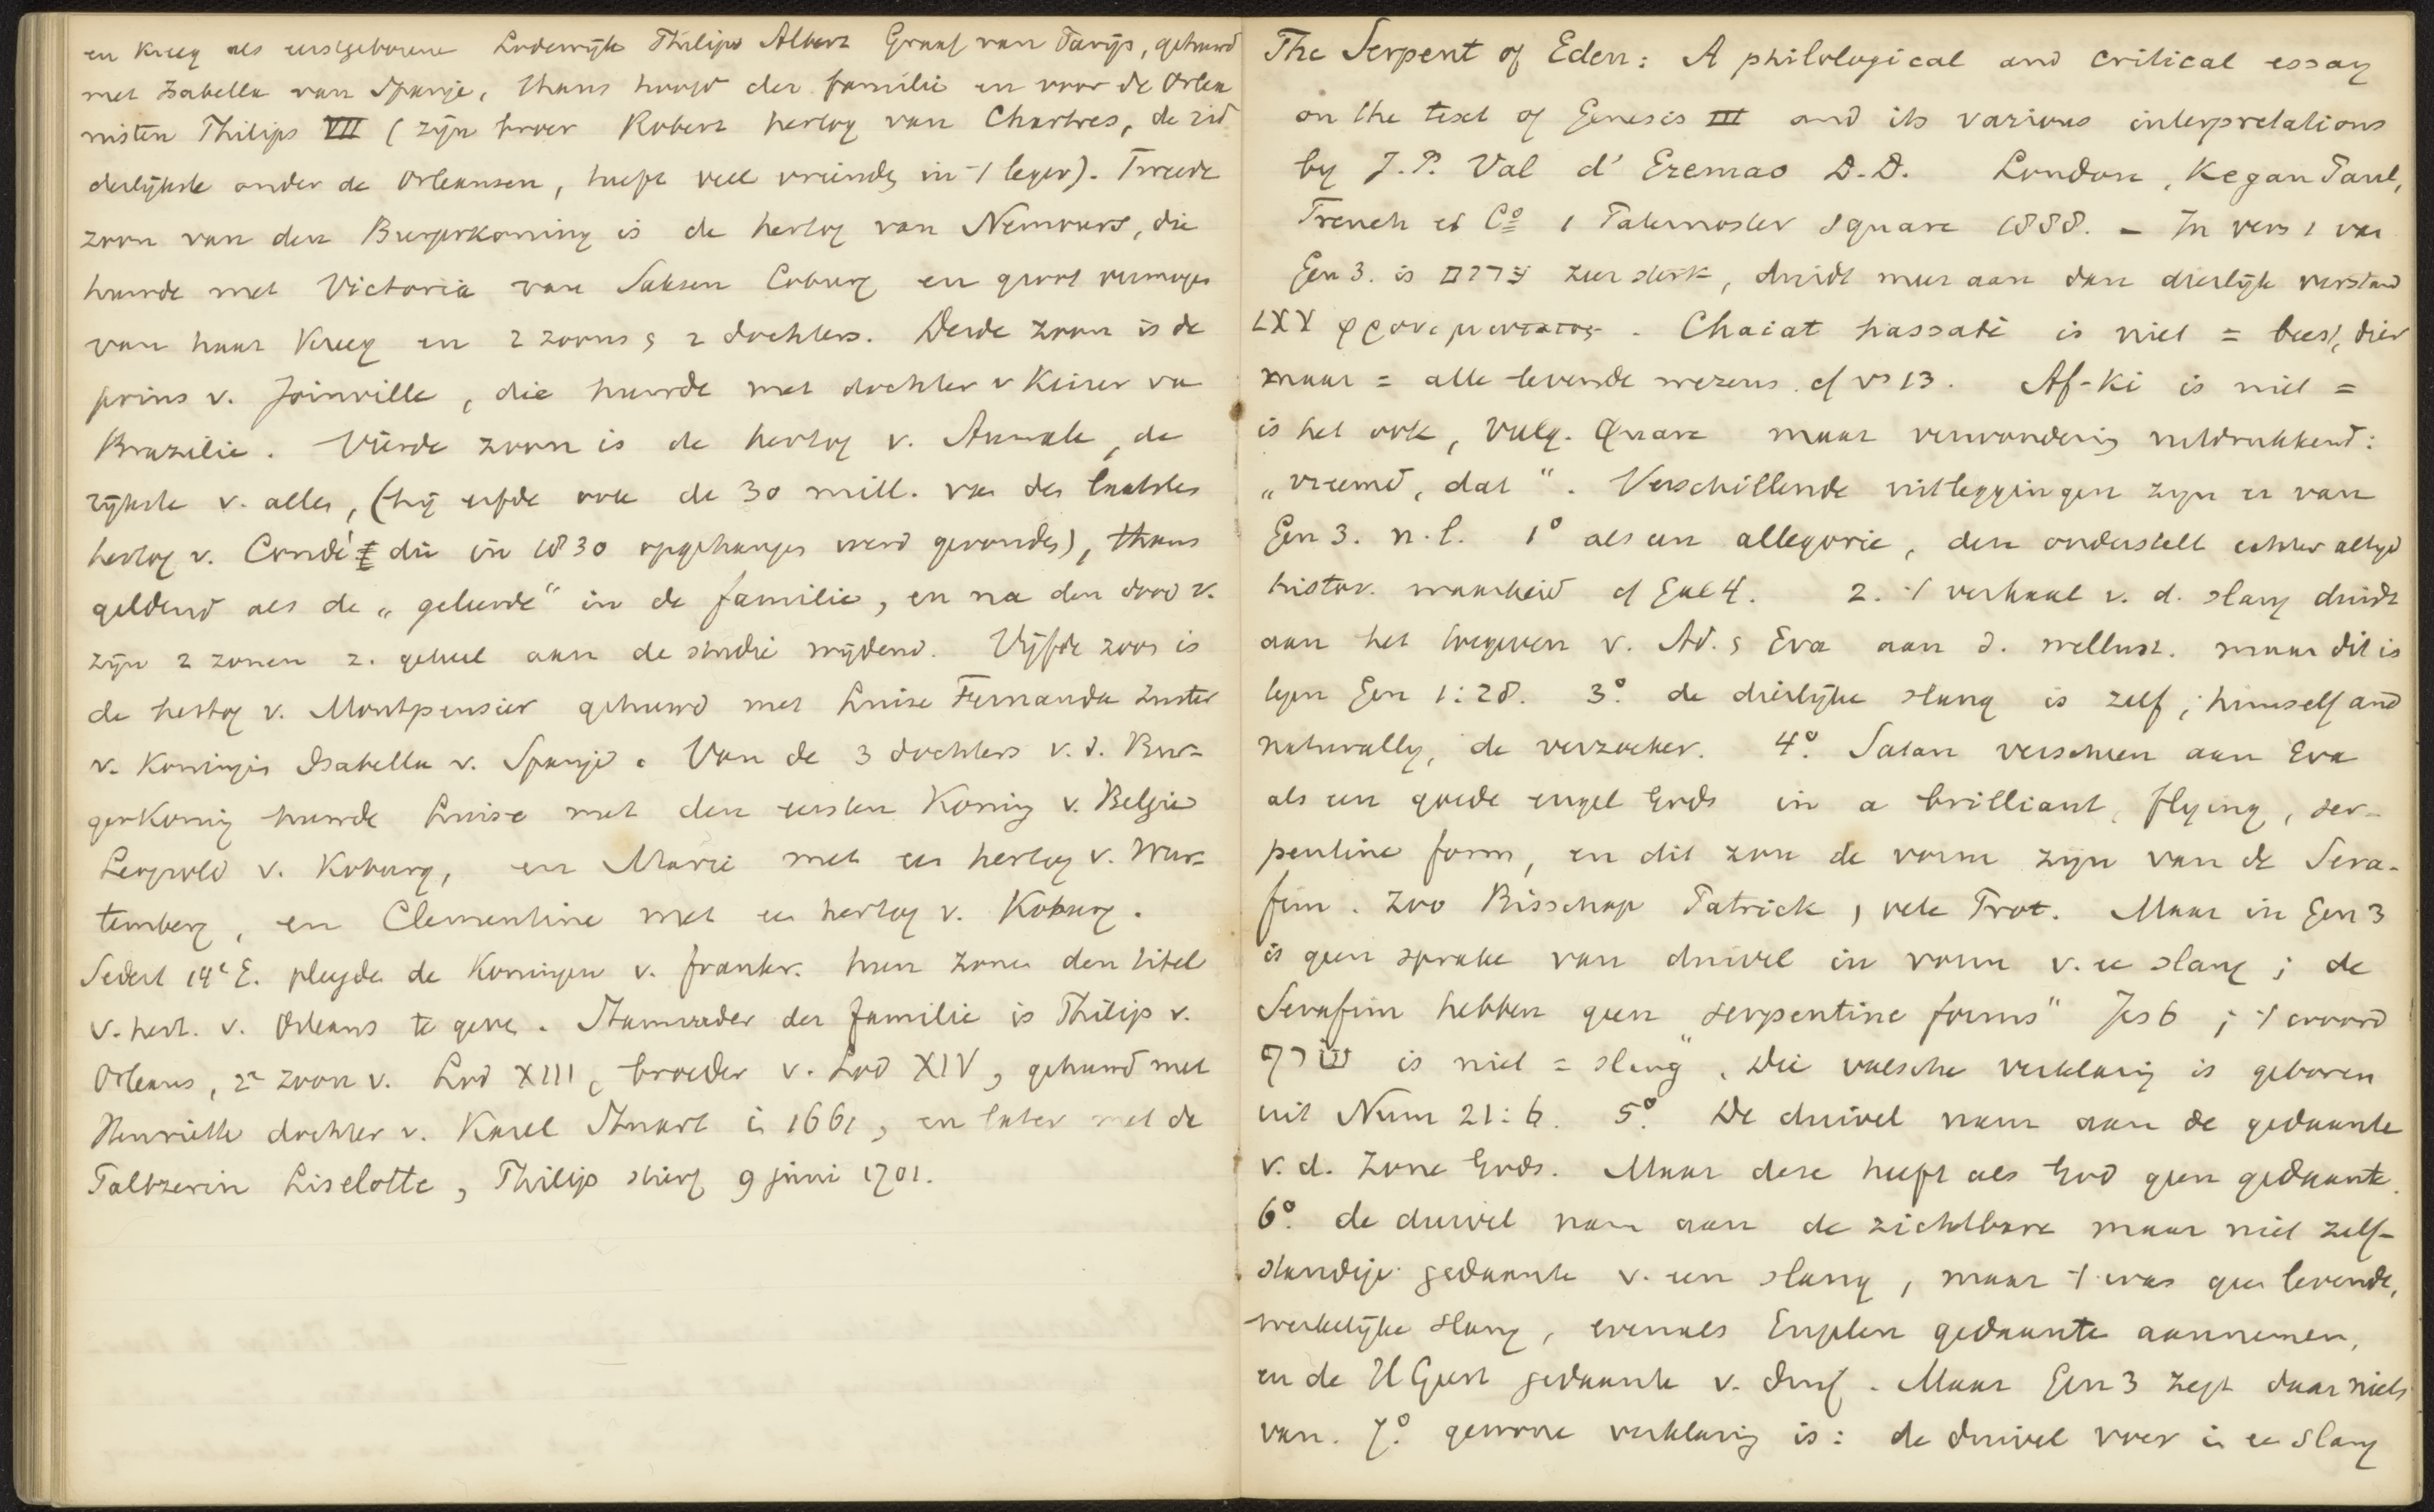 en kreeg als eerstgeborene Lodewijk Philips Albert Graaf van Parijs, gehuwd
met Isabella van Spanje, thans hoofd der familie en voor de Orlea
nisten Philips VII (zijn broer Robert hertog van Chartres, de rid
derlijkste onder de Orleansen, heeft veel vrienden in 't leger). Tweede
zoon van den Burgerkoning is de hertog van Nemours, die
huwde met Victoria van Saksen Coburg en groot vermogen
van haar kreeg en 2 zoons & 2 dochters. Derde zoon is de
prins v. Joinville, die huwde met dochter v Keizer va
Brazilie. Vierde zoon is de hertog v. Aumale, de
rijkste v. allen, (hij erfde ook de 30 mill. van den laatsten
hertog v. Condé die in 1830 opgehangen werd gevonden), thans
geldend als de „geleerde" in de familie, en na den dood v.
zijn 2 zonen z. geheel aan de studie wijdend. Vijfde zoon is
de hertog v. Montpensier gehuwd met Luise Fernanda zuster
v. Koningin Isabella v. Spanje. Van de 3 dochters v. d. Bur-
gerkoning huwde Luise met den eersten Koning v. Belgie
Leopold v. Koburg, en Marie met een hertog v. Wur-
temberg, en Clementine met een hertog v. Koburg.
Sedert 14e E. pleegden de Koningen v. frankr. hun zonen den titel
v. hert. v. Orleans te geven. Stamvader der familie is Philip v.
Orleans, 2e zoon v. Lod XIII, broeder v. Lod XIV, gehuwd met
Henriette dochter v. Karel Stuart in 1661, en later met de
Paltzerin Liselotte, Philip stierf 9 juni 1701.
The Serpent of Eden: A philological and critical essay
on the text of Genesis III and its various interpretations
by J.P. Val d'Eremao D.D. London, Kegan Paul,
Trench et Co 1 Paternoster square 1888. – In vers 1 van
Gen 3. is ערום zeer sterk, duidt meer aan dan dierlijk verstand
LXX φρονιμωτατος. Chaiat hassadé is niet = beest, dier
maar = alle levende wezens cf vs 13. Af-Ki is niet =
is het ook, Vulg. Quare maar verwondering uitdrukkend:
„vreemd, dat". Verschillende uitleggingen zijn er van
Gen 3. n.l. 1° als een allegorie, deze onderstelt echter altijd
histor. waarheid cf Gal 4. 2. 't verhaal v. d. slang duidt
aan het toegeven v. Ad. & Eva aan d. wellust. maar dit is
tegen Gen 1:28. 3° de dierlijke slang is zelf, himself and
naturally, de verzoeker. 4° Satan verscheen aan Eva
als een goede engel Gods in a brilliant, flying, ser-
pentine form, en dit zou de vorm zijn van de Sera-
fim. Zoo Bisschop Patrick, vele Prot. Maar in Gen 3
is geen sprake van duivel in vorm v. ee slang; de
Serafim hebben geen „serpentine forms" Jes 6; 't woord
שרף is niet = slang". Die valsche verklaring is geboren
uit Num 21:6. 5° De duivel nam aan de gedaante
v. d. Zone Gods. Maar deze heeft als God geen gedaante.
6° de duivel nam aan de zichtbare maar niet zelf-
standige gedaante v. een slang, maar 't was geen levende,
werkelijke slang, evenals Engelen gedaante aannemen,
en de H Geest gedaante v. duif. Maar Gen 3 zegt daar niets
van. 7° gewone verklaring is: de duivel voer in ee slang